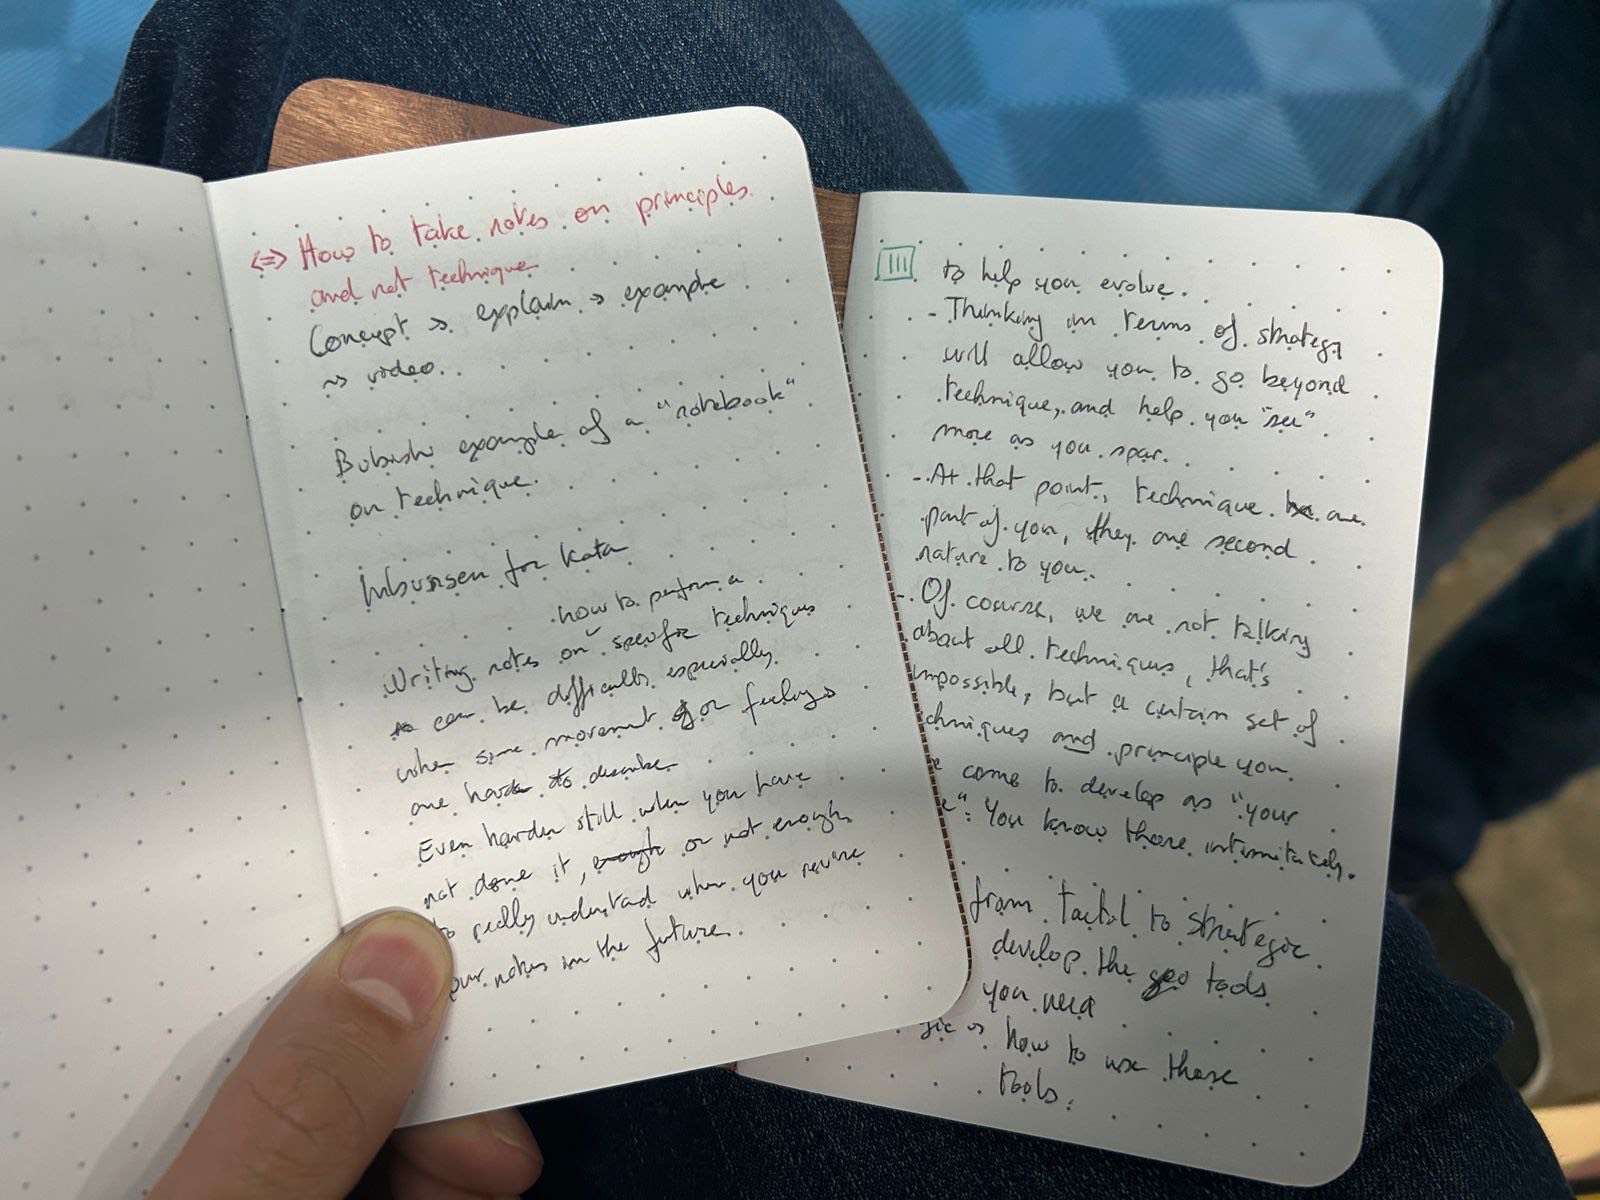 <=> How to take notes on principles
and not technique
Concept -> explain -> example
-> video.
Bubishi example of a "notebook"
on technique.
for kata
how to perform a
Writing notes on specific techniques
can be difficult, especially
when some movement or feelings
are hard to describe
Even harder still when you have
not done it, enough or not enough
to really understand when you revise
your notes in the future.
III to help you evolve.
- Thinking in terms of strategy
will allow you to go beyond
technique, and help you "see"
more as you spar.
- At that point, technique are
part of you, they are second
nature to you.
- Of course, we are not talking
about all techniques, that's
impossible, but a certain set of
chniques and principle you
e come to develop as "your
e". You know those intimitately.
from tactical to strategic
develop the tools
you need
gic -> how to use those
tools.